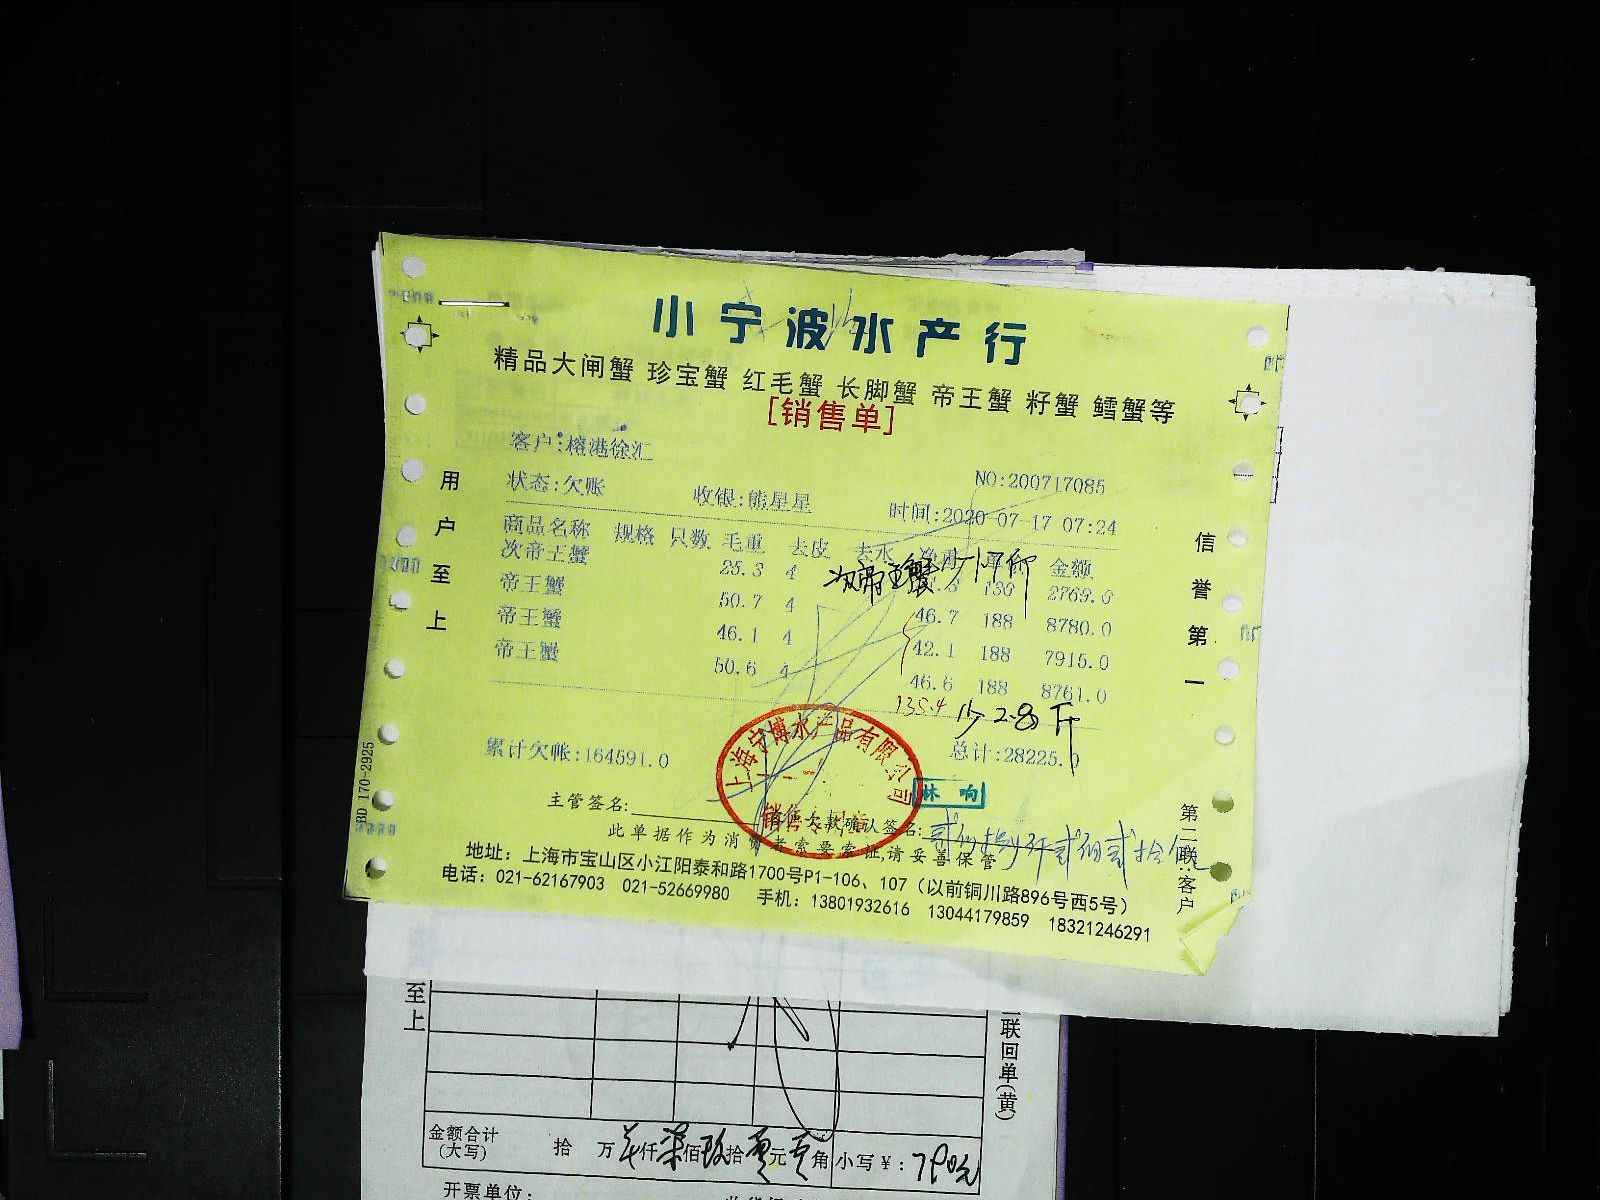 小宁波水产行
精品大闸蟹 珍宝蟹 红毛蟹 长脚蟹 帝王蟹 籽蟹 鳕蟹等
[销售单]
客户:榕港徐汇
NO:200717085
状态:欠账 收银:熊星星 时间:2020-07-17 07:24
商品名称 规格 只数 毛重 去皮 去水 净重 单价 金额
次帝王蟹 25.3 4 130 2769.0
帝王蟹 50.7 4 46.7 188 8780.0
帝王蟹 46.1 4 42.1 188 7915.0
帝王蟹 50.6 4 46.6 188 8761.0
次帝王蟹
135.4 少2.8斤
累计欠帐:164591.0 总计:28225.0
上海宁博水产品有限公司
林响
主管签名: 欠款确认签名:
此单据作为消费者索要索证,请妥善保管
地址：上海市宝山区小江阳泰和路1700号P1-106、107（以前铜川路896号西5号）
电话：021-62167903 021-52669980 手机：13801932616 13044179859 18321246291
用户至上
信誉第一
第二联:客户
BD 170-2925
至上
联回单(黄)
金额合计(大写) 拾 万 仟柒佰玖拾零元零角 小写￥: 790元
开票单位: